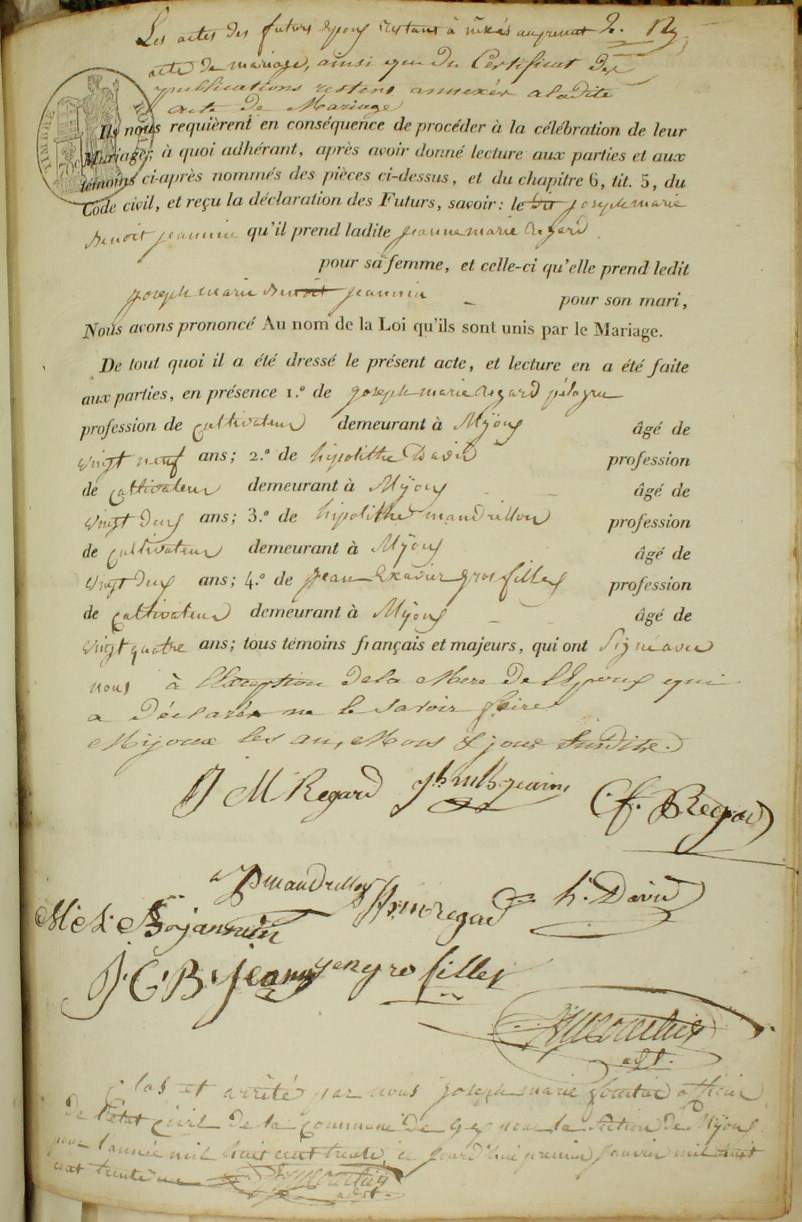 Les actes des futurs Epoux restans annexés au present
acte de mariage, ainsi que du Certificat des
publications restent annexés a ladite
acte de Mariage
TIMBRE
Ils nous requièrent en conséquence de procéder à la célébration de leur
Mariage; à quoi adhérant, après avoir donné lecture aux parties et aux
témoins ci-après nommés des pièces ci-dessus, et du chapitre 6, tit. 5, du
Code civil, et reçu la déclaration des Futurs, savoir: le joseph marie
Benoit jeannin qu'il prend ladite jeanne marie regard
pour sa femme, et celle-ci qu'elle prend ledit
joseph marie Benoit jeannin pour son mari,
Nous avons prononcé Au nom de la Loi qu'ils sont unis par le Mariage.
De tout quoi il a été dressé le présent acte, et lecture en a été faite
aux parties, en présence 1.° de joseph marie regard pélagru
profession de cultivateur demeurant à Mijoux âgé de
vingt neuf ans; 2.° de hipolithe David profession
de cultivateur demeurant à Mijoux âgé de
vingt deux ans; 3.° de hipolithe mandrillon profession
de cultivateur demeurant à Mijoux âgé de
vingt deux ans; 4.° de jean Exavier gros fillex profession
de cultivateur demeurant à Mijoux âgé de
vingt quatre ans; tous témoins français et majeurs, qui ont signé avec
nous à l'Exception de la Mere de l'Epoux qui
a Déclaré ne le savoir faire
Mijoux les an, Mois & jour susdits.
J M Regard jh m b jeannin C. f. Regard
h mandrillon jh m regad h. David
J. C. B. jeannin gro fillex
adjt.
Clos et arrêté par nous joseph marie officier
De l'Etat Civil de la Commune de gex pour la section de Mijoux
pour l'année mil huit cent trente, ce jourd'hui premier janvier mil huit
cent trente un
adjt.